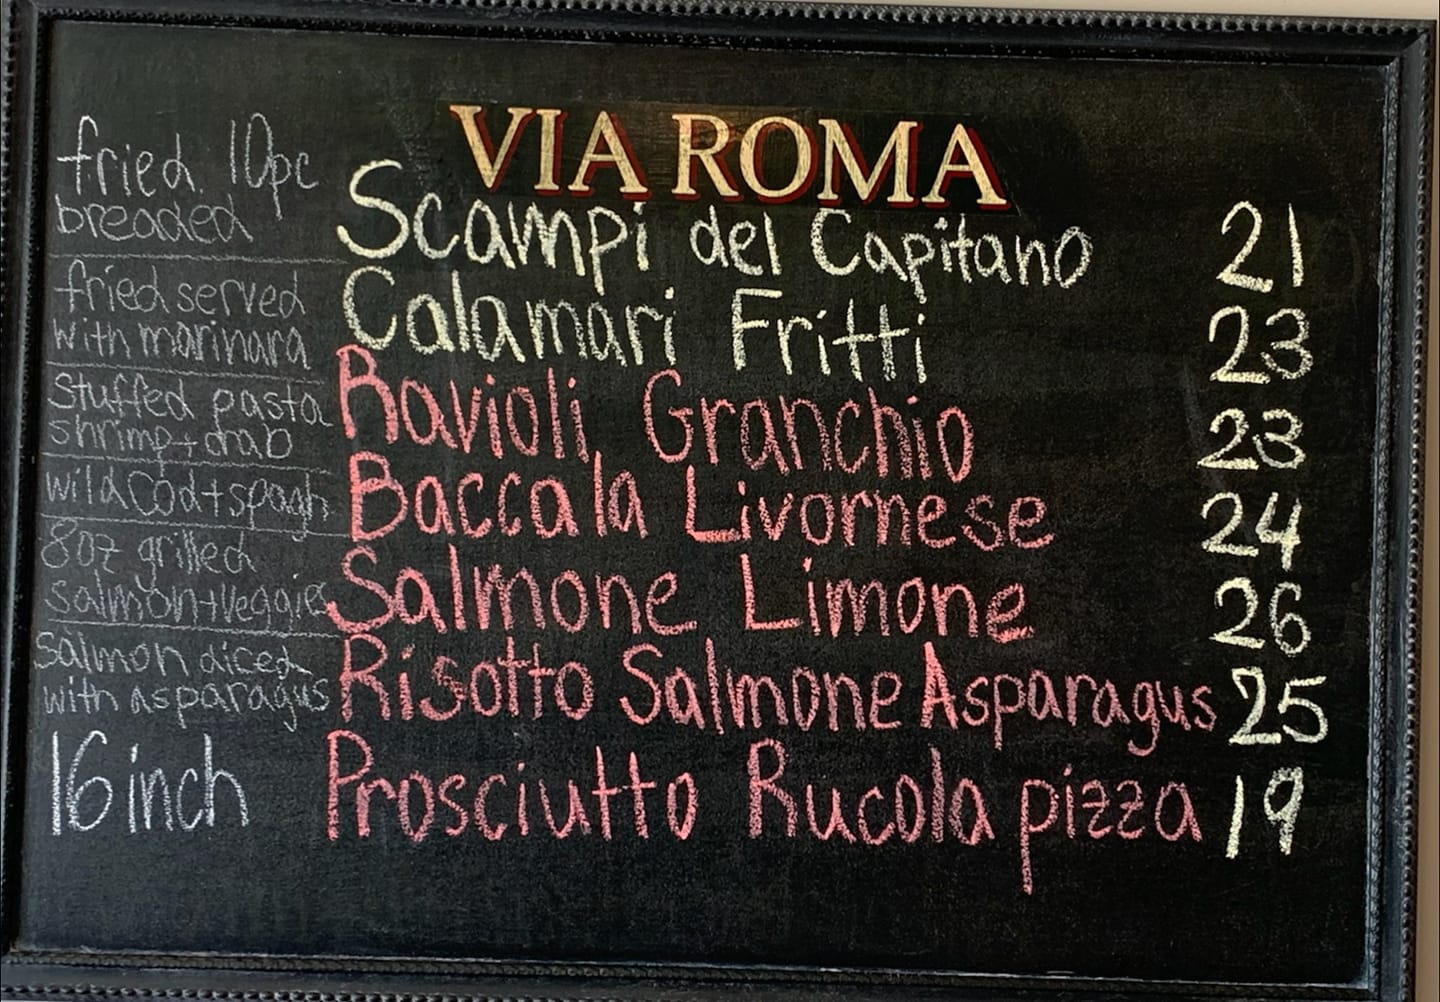 VIA ROMA
fried 10pc
breaded
Scampi del Capitano 21
fried served
with marinara
Calamari Fritti 23
Stuffed pasta
shrimp + crab
Ravioli Granchio 23
wild Cod + spagh
Baccala Livornese 24
8oz grilled
salmon + veggies
Salmone Limone 26
salmon diced
with asparagus
Risotto Salmone Asparagus 25
16 inch
Prosciutto Rucola pizza 19